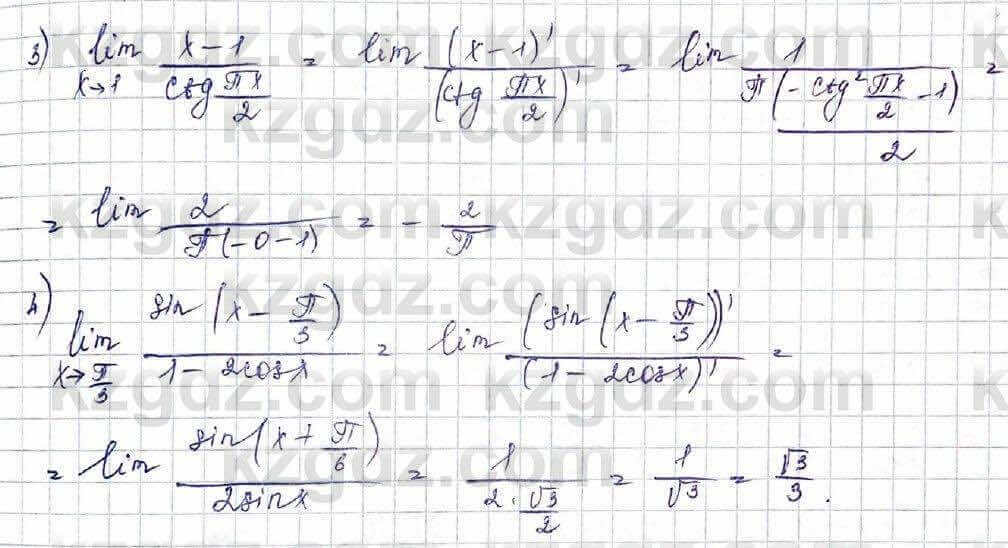 3) lim x→1 (x-1)/(ctg πx/2) = lim (x-1)'/(ctg πx/2)' = lim 1/(π(-ctg² πx/2 -1)/2) =
= lim 2/(π(-0-1)) = - 2/π
4) lim x→π/3 sin(x - π/3)/(1-2cosx) = lim (sin(x - π/3))'/(1-2cosx)' =
= lim sin(x+ π/6)/(2sinx) = 1/(2·√3/2) = 1/√3 = √3/3.
kzgdz.com